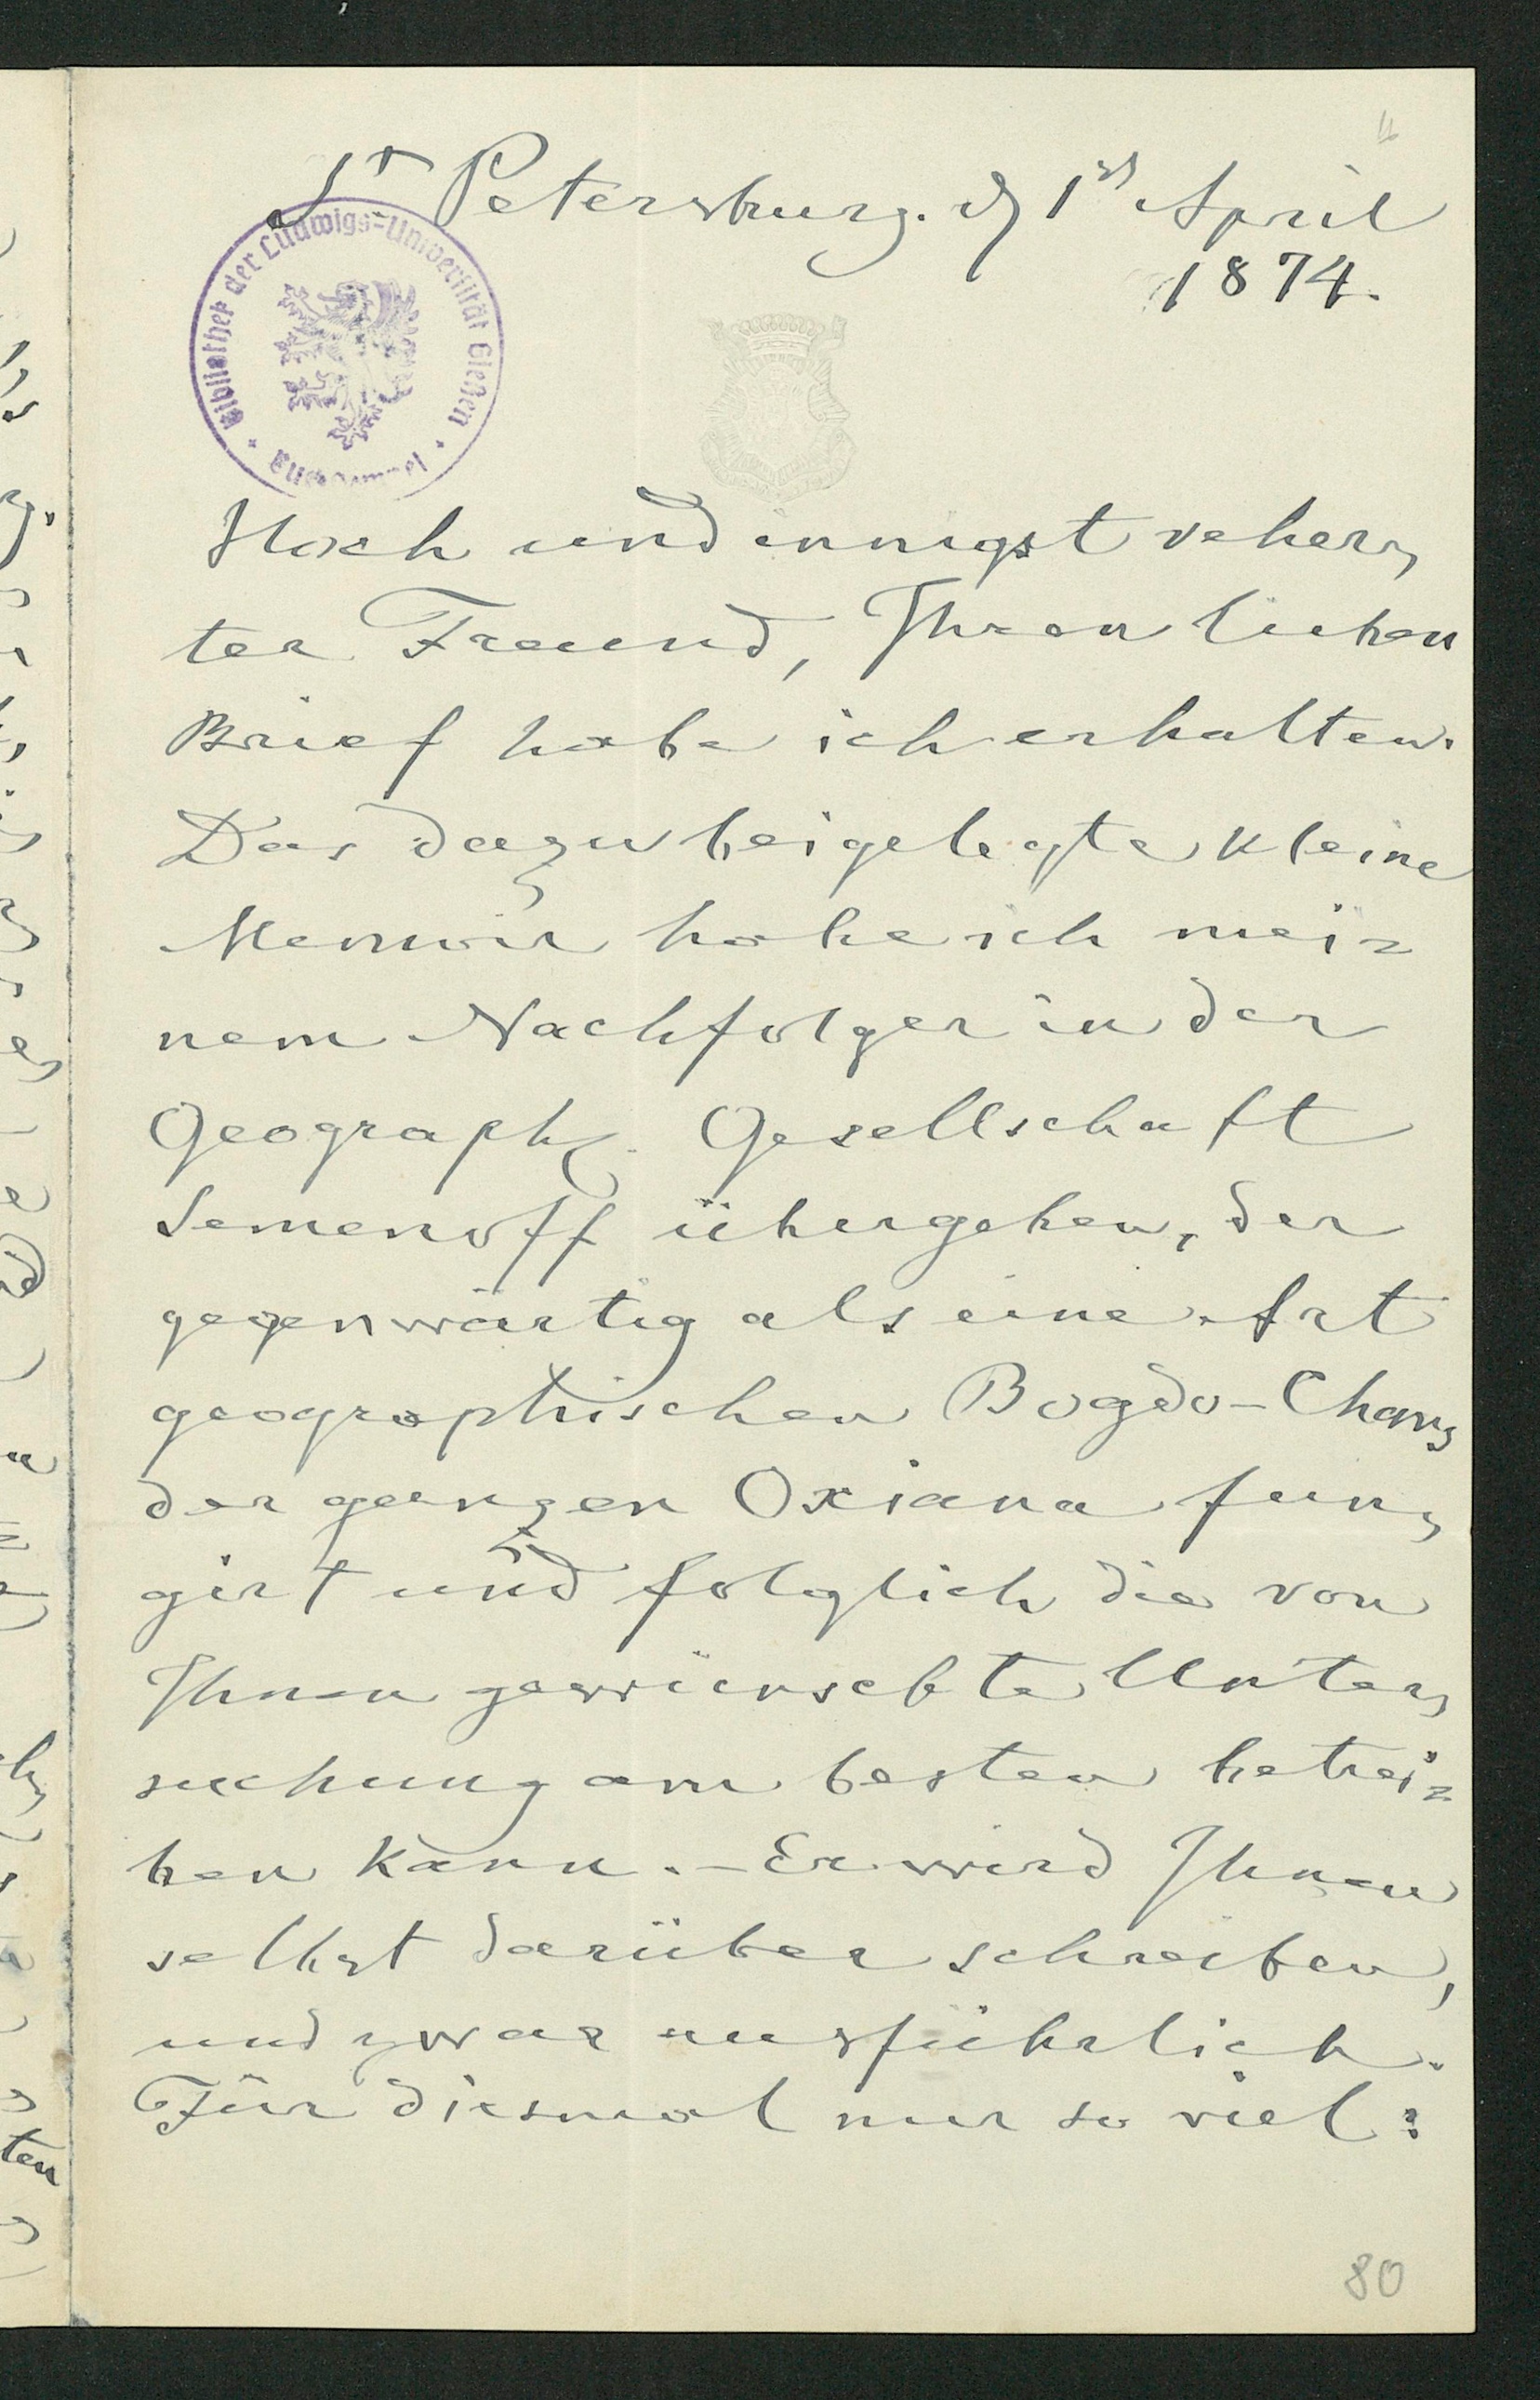 St Petersburg. d 1st April
1874.
Bibliothek der Ludwigs=Universität Gießen
Hoch und innigst veher,
ter Freund, Ihren lieben
Brief habe ich erhalten.
Das dazu beigelegte kleine
Memoir habe ich mei=
nem Nachfolger in der
Geograph. Gesellschaft
Semenoff übergeben, der
gegenwärtig als eine Art
geographischen Bogdo-Chans
der ganzen Oxiana fun,
girt und folglich die von
Ihnen gewünschte Unter,
suchung am besten betrei=
ben kann. – Er wird Ihnen
selbst darüber schreiben,
und zwar ausführlich.
Für diesmal nur so viel:
80